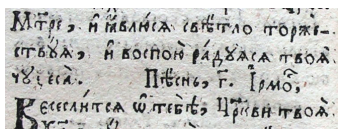 Мт҃ре, и҆ ꙗ҆ви́лсѧ свѣ́тло торже-
ствꙋѧ, и҆ воспою̀ ра́дꙋѧсѧ твоѧ̀
чꙋдеса̀. Пѣ́снь, г҃. І҆рмо́съ,
Веселитсѧ ѡ҆ тебѣ̀, Цр҃кви твоѧ̀